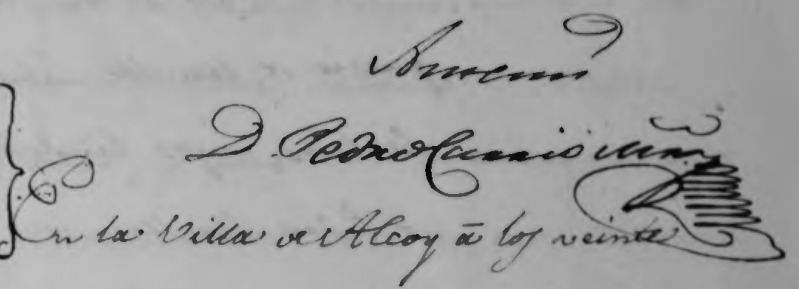 Ante mi
D. Pedro Carrio
En la Villa de Alcoy á los veinte